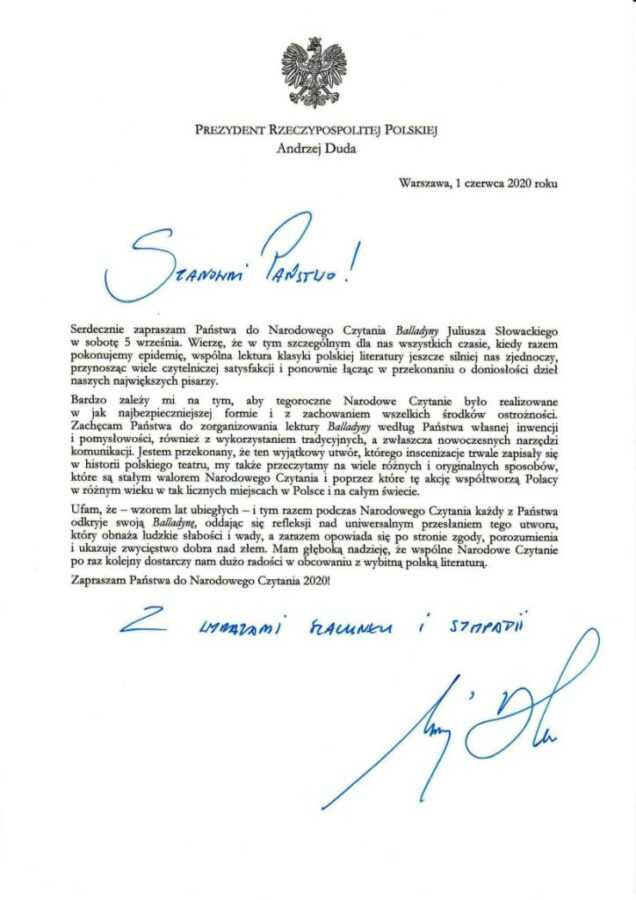 PREZYDENT RZECZYPOSPOLITEJ POLSKIEJ
Andrzej Duda
Warszawa, 1 czerwca 2020 roku
SZANOWNI PAŃSTWO!
Serdecznie zapraszam Państwa do Narodowego Czytania Balladyny Juliusza Słowackiego
w sobotę 5 września. Wierzę, że w tym szczególnym dla nas wszystkich czasie, kiedy razem
pokonujemy epidemię, wspólna lektura klasyki polskiej literatury jeszcze silniej nas zjednoczy,
przynosząc wiele czytelniczej satysfakcji i ponownie łącząc w przekonaniu o doniosłości dzieł
naszych największych pisarzy.
Bardzo zależy mi na tym, aby tegoroczne Narodowe Czytanie było realizowane
w jak najbezpieczniejszej formie i z zachowaniem wszelkich środków ostrożności.
Zachęcam Państwa do zorganizowania lektury Balladyny według Państwa własnej inwencji
i pomysłowości, również z wykorzystaniem tradycyjnych, a zwłaszcza nowoczesnych narzędzi
komunikacji. Jestem przekonany, że ten wyjątkowy utwór, którego inscenizacje trwale zapisały się
w historii polskiego teatru, my także przeczytamy na wiele różnych i oryginalnych sposobów,
które są stałym walorem Narodowego Czytania i poprzez które tę akcję współtworzą Polacy
w różnym wieku w tak licznych miejscach w Polsce i na całym świecie.
Ufam, że – wzorem lat ubiegłych – i tym razem podczas Narodowego Czytania każdy z Państwa
odkryje swoją Balladynę, oddając się refleksji nad uniwersalnym przesłaniem tego utworu,
który obnaża ludzkie słabości i wady, a zarazem opowiada się po stronie zgody, porozumienia
i ukazuje zwycięstwo dobra nad złem. Mam głęboką nadzieję, że wspólne Narodowe Czytanie
po raz kolejny dostarczy nam dużo radości w obcowaniu z wybitną polską literaturą.
Zapraszam Państwa do Narodowego Czytania 2020!
Z WYRAZAMI SZACUNKU I SYMPATII